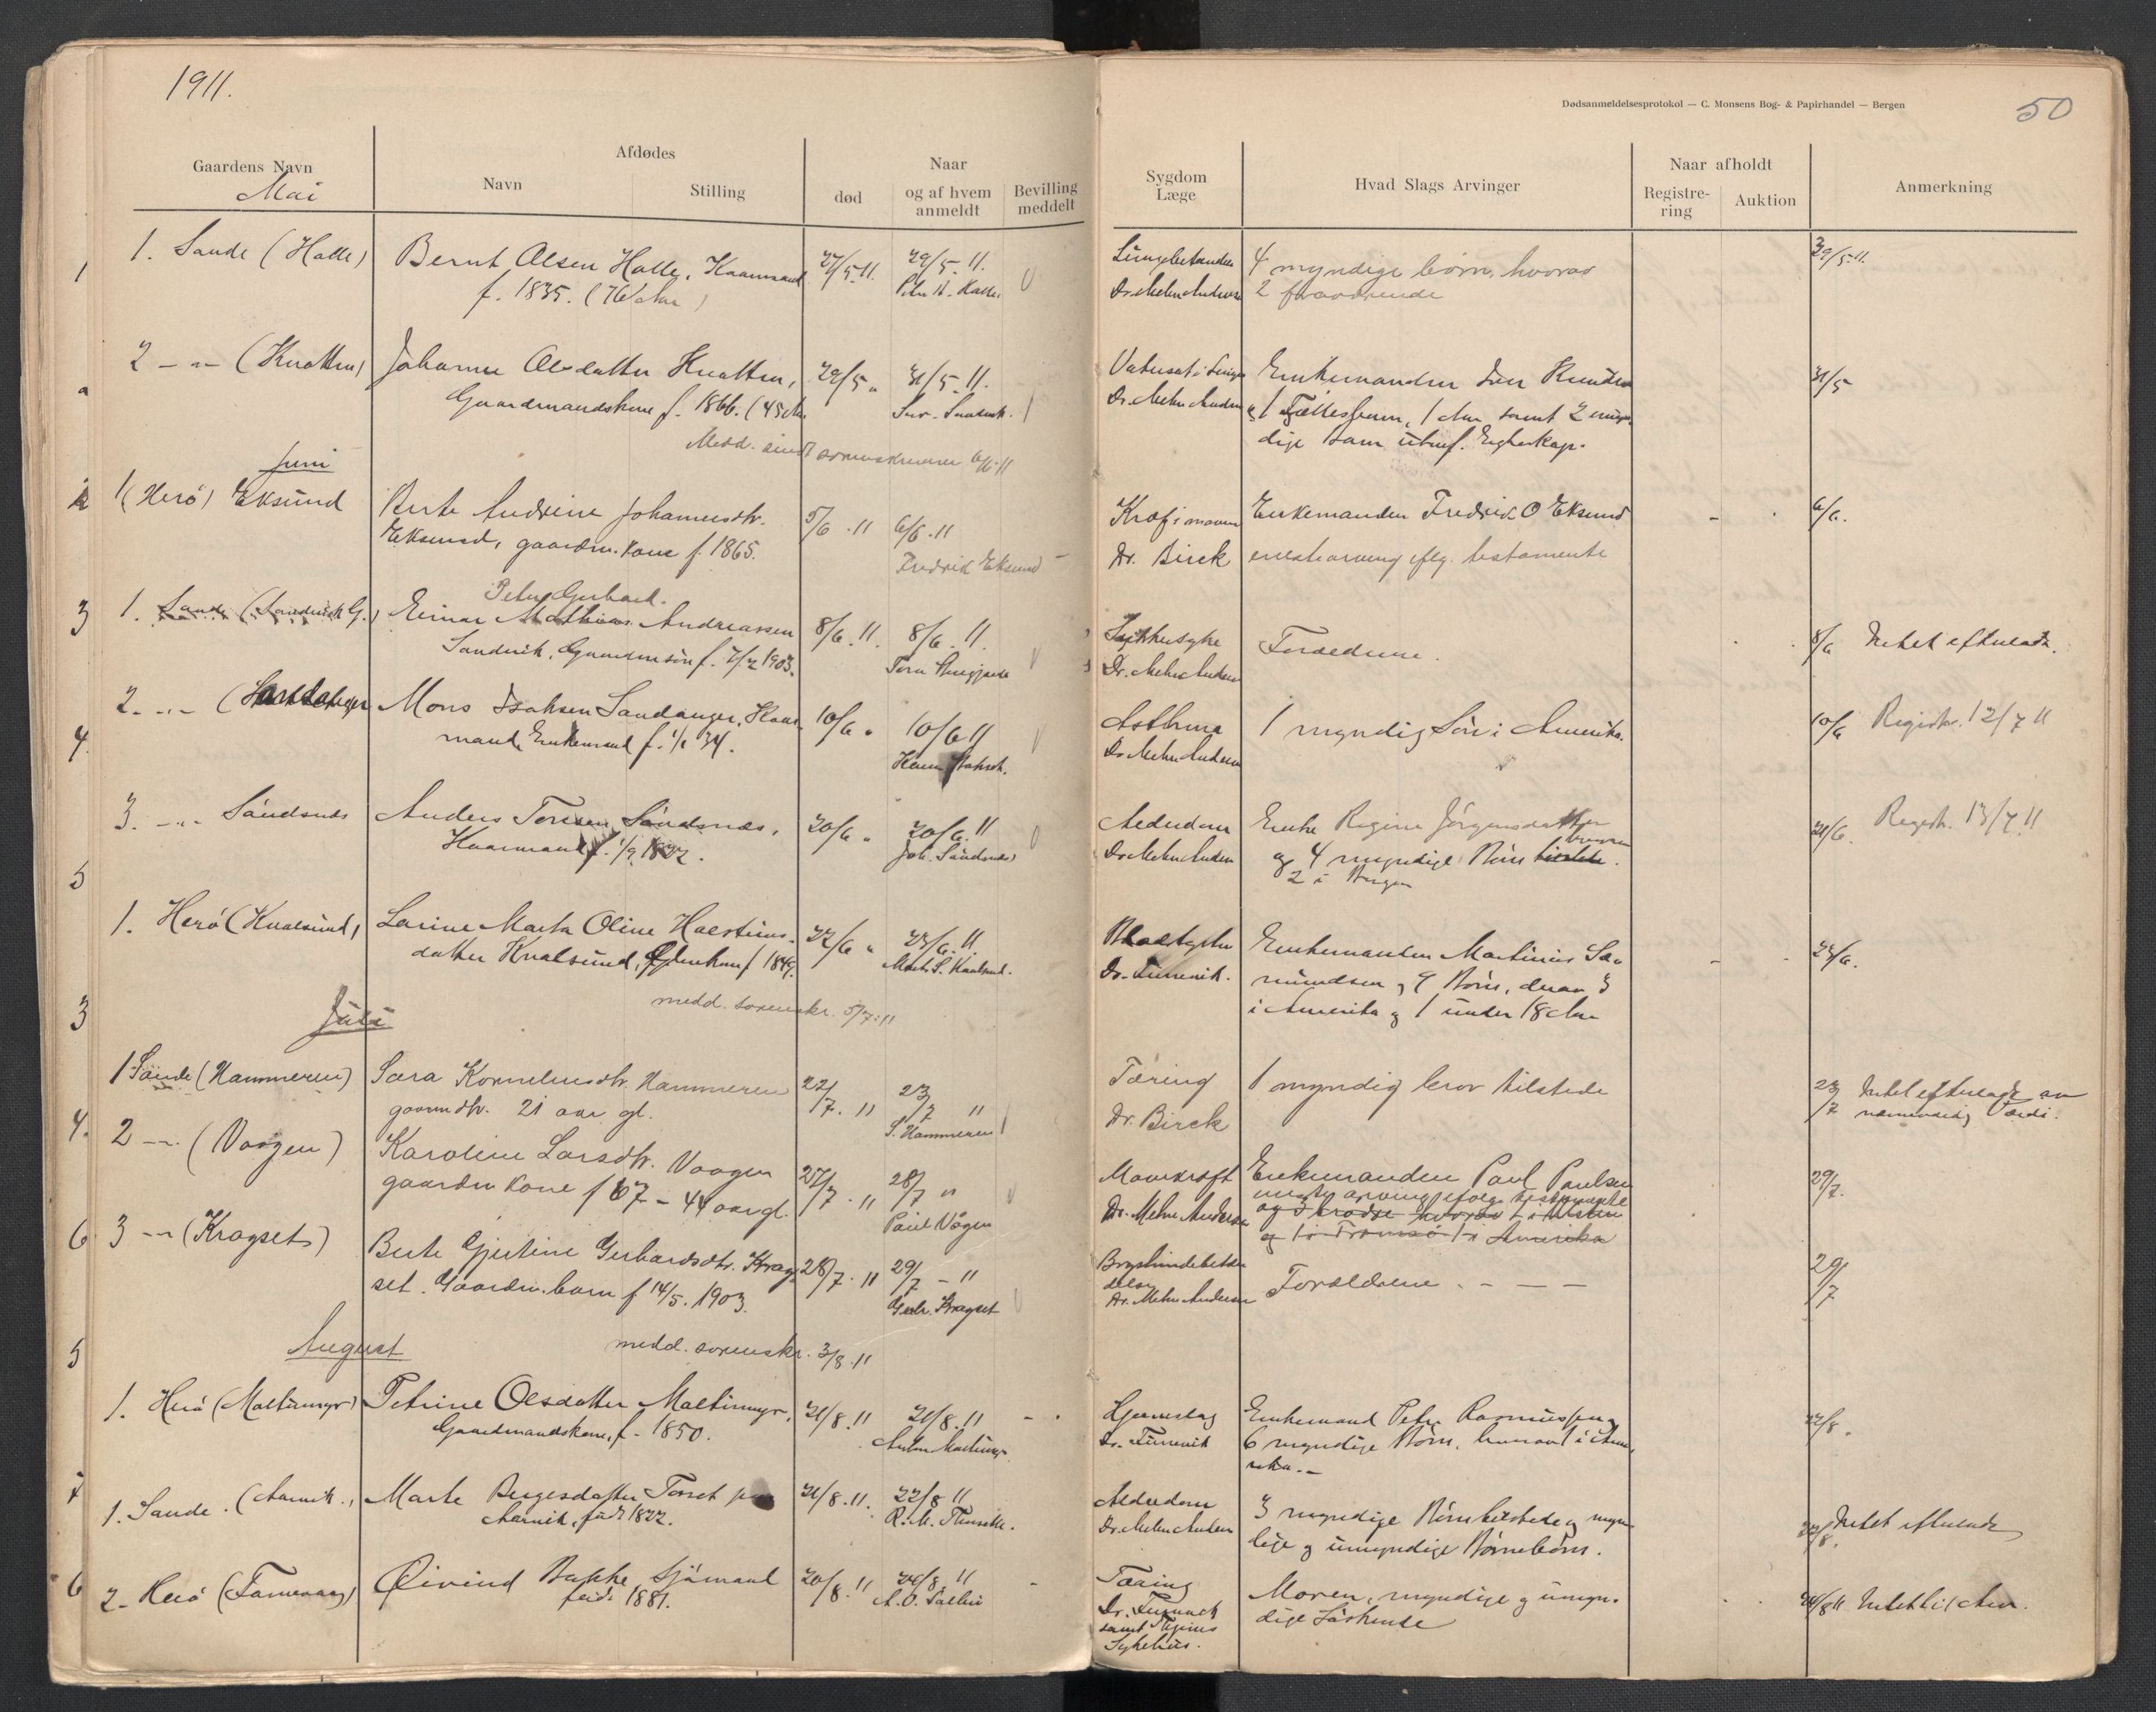 1911.
Dødsanmeldelsesprotokol — C. Monsens Bog- & Papirhandel — Bergen
50
Gaardens Navn
Afdødes
Navn
Stilling
død
Naar
og af hvem
anmeldt
Bevilling
meddelt
Sygdom
Læge
Hvad Slags Arvinger
Naar afholdt
Registre-
ring
Auktion
Anmerkning
Mai
1
1. Sande (Halle)
Bernt Olsen Halle, Kaarmand
f. 1835. (76 Aar)
27/5 11.
29/5. 11.
Dr. Mehn Andersen
4 myndige børn, hvorav
2 fraværende
29/5 11.
2 - " - (Knotten)
Johanne Olsdatter Knotten,
Gaardmandskone f. 1866. (45 Aar
29/5 "
31/5. 11.
Dr. Mehn Andersen
Enkemanden Iver Knudsen
1 Fællesbarn, 1 Aar samt 2 umyn-
dige Barn
31/5
Medd. sendt sorenskriveren 6/6 11
Juni
1 (Herø) Eksund
Berte Andrine Johannesdtr.
Eksund, gaardm. kone f. 1865.
5/6 . 11
6/6 . 11
Fredrik Eksund
Kræf i maven
Dr. Birck
Enkemanden Fredrik O Eksund
enestearving iflg. testamente
6/6.
3
1. Sande (Sandvik G.)
Peter Gerhard.
Einar Mathias Andreassen
Sandvik, Gaardm søn f. 7/2 1903.
8/6. 11.
8/6. 11
Dr. Mehn Andersen
Forældrene.
8/6 Intet efterladt.
4.
2. - " - (Sandanger
Mons Isaksen Sandanger, Kaar-
mand, Enkemand f. 1/1 34.
10/6 "
10/6 11
Asthma
Dr. Mehn Andersen
1 myndig Søn i Amerika.
10/6 Registr. 12/7 11
3. - " - Sandsnes
Anders Torsen Sandsnes,
Kaarmand f. 1/9 1822.
20/6 "
20/6. 11
Joh. Sandsnes
Alderdom
Dr. Mehn Andersen
Enke Regine Jørgensdatter
og 4 myndige Børn hvorav
2 i Bergen
21/6. Registr. 13/7 11
5
1. Herø (Kvalsund)
Larine Marta Oline
datter Kvalsund, f 1849.
22/6 "
23/6. 11
Enkemanden Martinus Sa-
mundsen, 9 Børn, derav 3
i Amerika og 1 under 18 Aar
23/6.
3
medd. sorenskr. 5/7. 11
Juli
1 Sande (Hammeren)
Sara Kornelius dtr. Hammeren
gaarmdtr. 21 aar gl.
22/7. 11
23/7 "
S. Hammeren
Tæring
Dr. Birck
1 myndig bror tilstede
23/7 Intet efterladt av
nævneværdig Værdi.
4.
2 - " - (Vaagen)
Karoline Larsdtr. Vaagen
gaardm kone f 67 - 44 aar gl.
27/7 . 11
28/7 "
Paul Vågen
Mavekræft
Dr. Mehn Andersen
Enkemanden Paul Paulsen
eneste arving ifølge testamente
og 3 brødre hvorav 1 i Aalesund
og 1 i Tromsø 1 i Amerika
29/7.
6
3 - " - (Kragset)
Berte Gjertine Gerhardsdtr. Krag-
set. Gaardm. barn f 14/5. 1903.
28/7. 11
29/7 - "
Gerh. Kragset
Brysthindebetæn-
delse
Dr. Mehn Andersen
Forældrene . - — —
29/7
5
August
medd. sorenskr. 3/8. 11
1. Herø (Moltumyr)
Petrine Olsdatter Moltumyr,
Gaardmandskone, f. 1850.
21/8. 11
21/8. 11
Hjerneslag
Enkemand Peter Rasmussen og
6 myndige Børn, hvorav 1 i Ame-
rika. -
22/8.
1. Sande . (Aarvik.)
Marte Børgesdatter
Aarvik, født 1822.
21/8. 11.
22/8 11
Alderdom
Dr. Mehn Andersen
3 myndige Børn tilstede og myn-
dige og umyndige Børnebørn.
22/8. Intet efterladt
6
2. Herø (Tarnevaag)
Øivind Bakke Sjømand
født 1881.
20/8. 11
24/8. 11
Tæring
Sykehus.
Moren, myndige og umyn-
dige Søskende
24/8 11